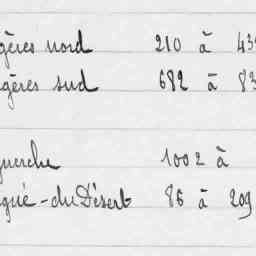 gères nord 210 à 43
gères sud 682 à 83
guerche 1002 à
gué-du Désert 86 à 209